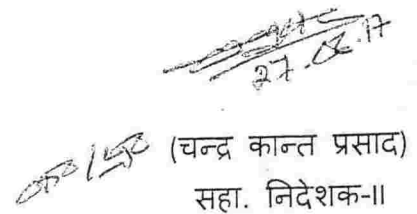 27.02.17
(चन्द्र कान्त प्रसाद)
सहा. निदेशक-II